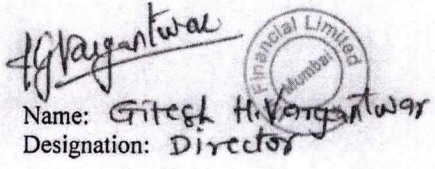 HGVargantwar
Financial Limited
Mumbai
Name: Gitesh H. Vargantwar
Designation: Director